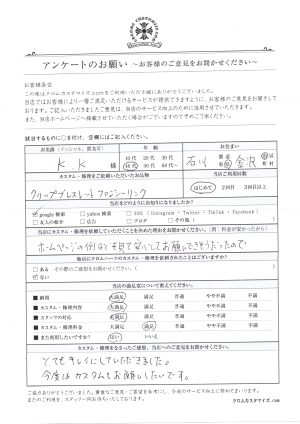 アンケートのお願い ～お客様のご意見をお聞かせください～
お客様各位
この度はクロムカスタマイズ.comをご利用いただき誠にありがとうございました。
当店ではお客様により一層ご満足いただけるサービスが提供できますよう、お客様のご意見をお聞きして
おります。ご記入いただきましたご意見は、当店のサービス向上のために活用させていただきます。
また、当店ホームページへ掲載させていただく場合がございますので予めご了承ください。
該当するものに○を付け、空欄にはご記入ください。
お名前（イニシャル、匿名可） 年齢 お住まい
K.K 様 10代 20代 30代 40代 50代 60代～ 石川 都道府県 金沢 市区町村
カスタム・修理をご依頼いただいたお品物 当店ご利用回数
クリップブレスレット フロジャーリンク はじめて 2回目 3回目以上
当店をどのようにお知りになりましたか？
google検索 yahoo検索 SNS（Instagram・Twitter・TikTok・Facebook）
友人の紹介 広告 ブログ その他（ ）
当店にカスタム・修理を依頼していただくことを決めた理由をお聞かせください。（例：料金が安かったから）
ホームページの例などを見て安心してお願いできそうだったので
他店にクロムハーツのカスタム・修理を依頼されたことはございますか？
ある その際のご感想をお聞かせください。（ ）
ない
当店の満足度について教えてください。
■ 納期 大満足 満足 普通 やや不満 不満
■ カスタム・修理内容 大満足 満足 普通 やや不満 不満
■ スタッフの対応 大満足 満足 普通 やや不満 不満
■ カスタム・修理料金 大満足 満足 普通 やや不満 不満
■ また利用したいですか？ はい いいえ
カスタム・修理をなさったご感想、当店へのご意見をお聞かせください。
とてもキレイにしていただきました。
今度はカスタムもお願いしたいです。
ご協力ありがとうございました。貴重なご意見・ご要望を参考にし、今後のサービス向上に努めてまいります。
またのご利用を、スタッフ一同お待ちいたしております。
クロムカスタマイズ.com